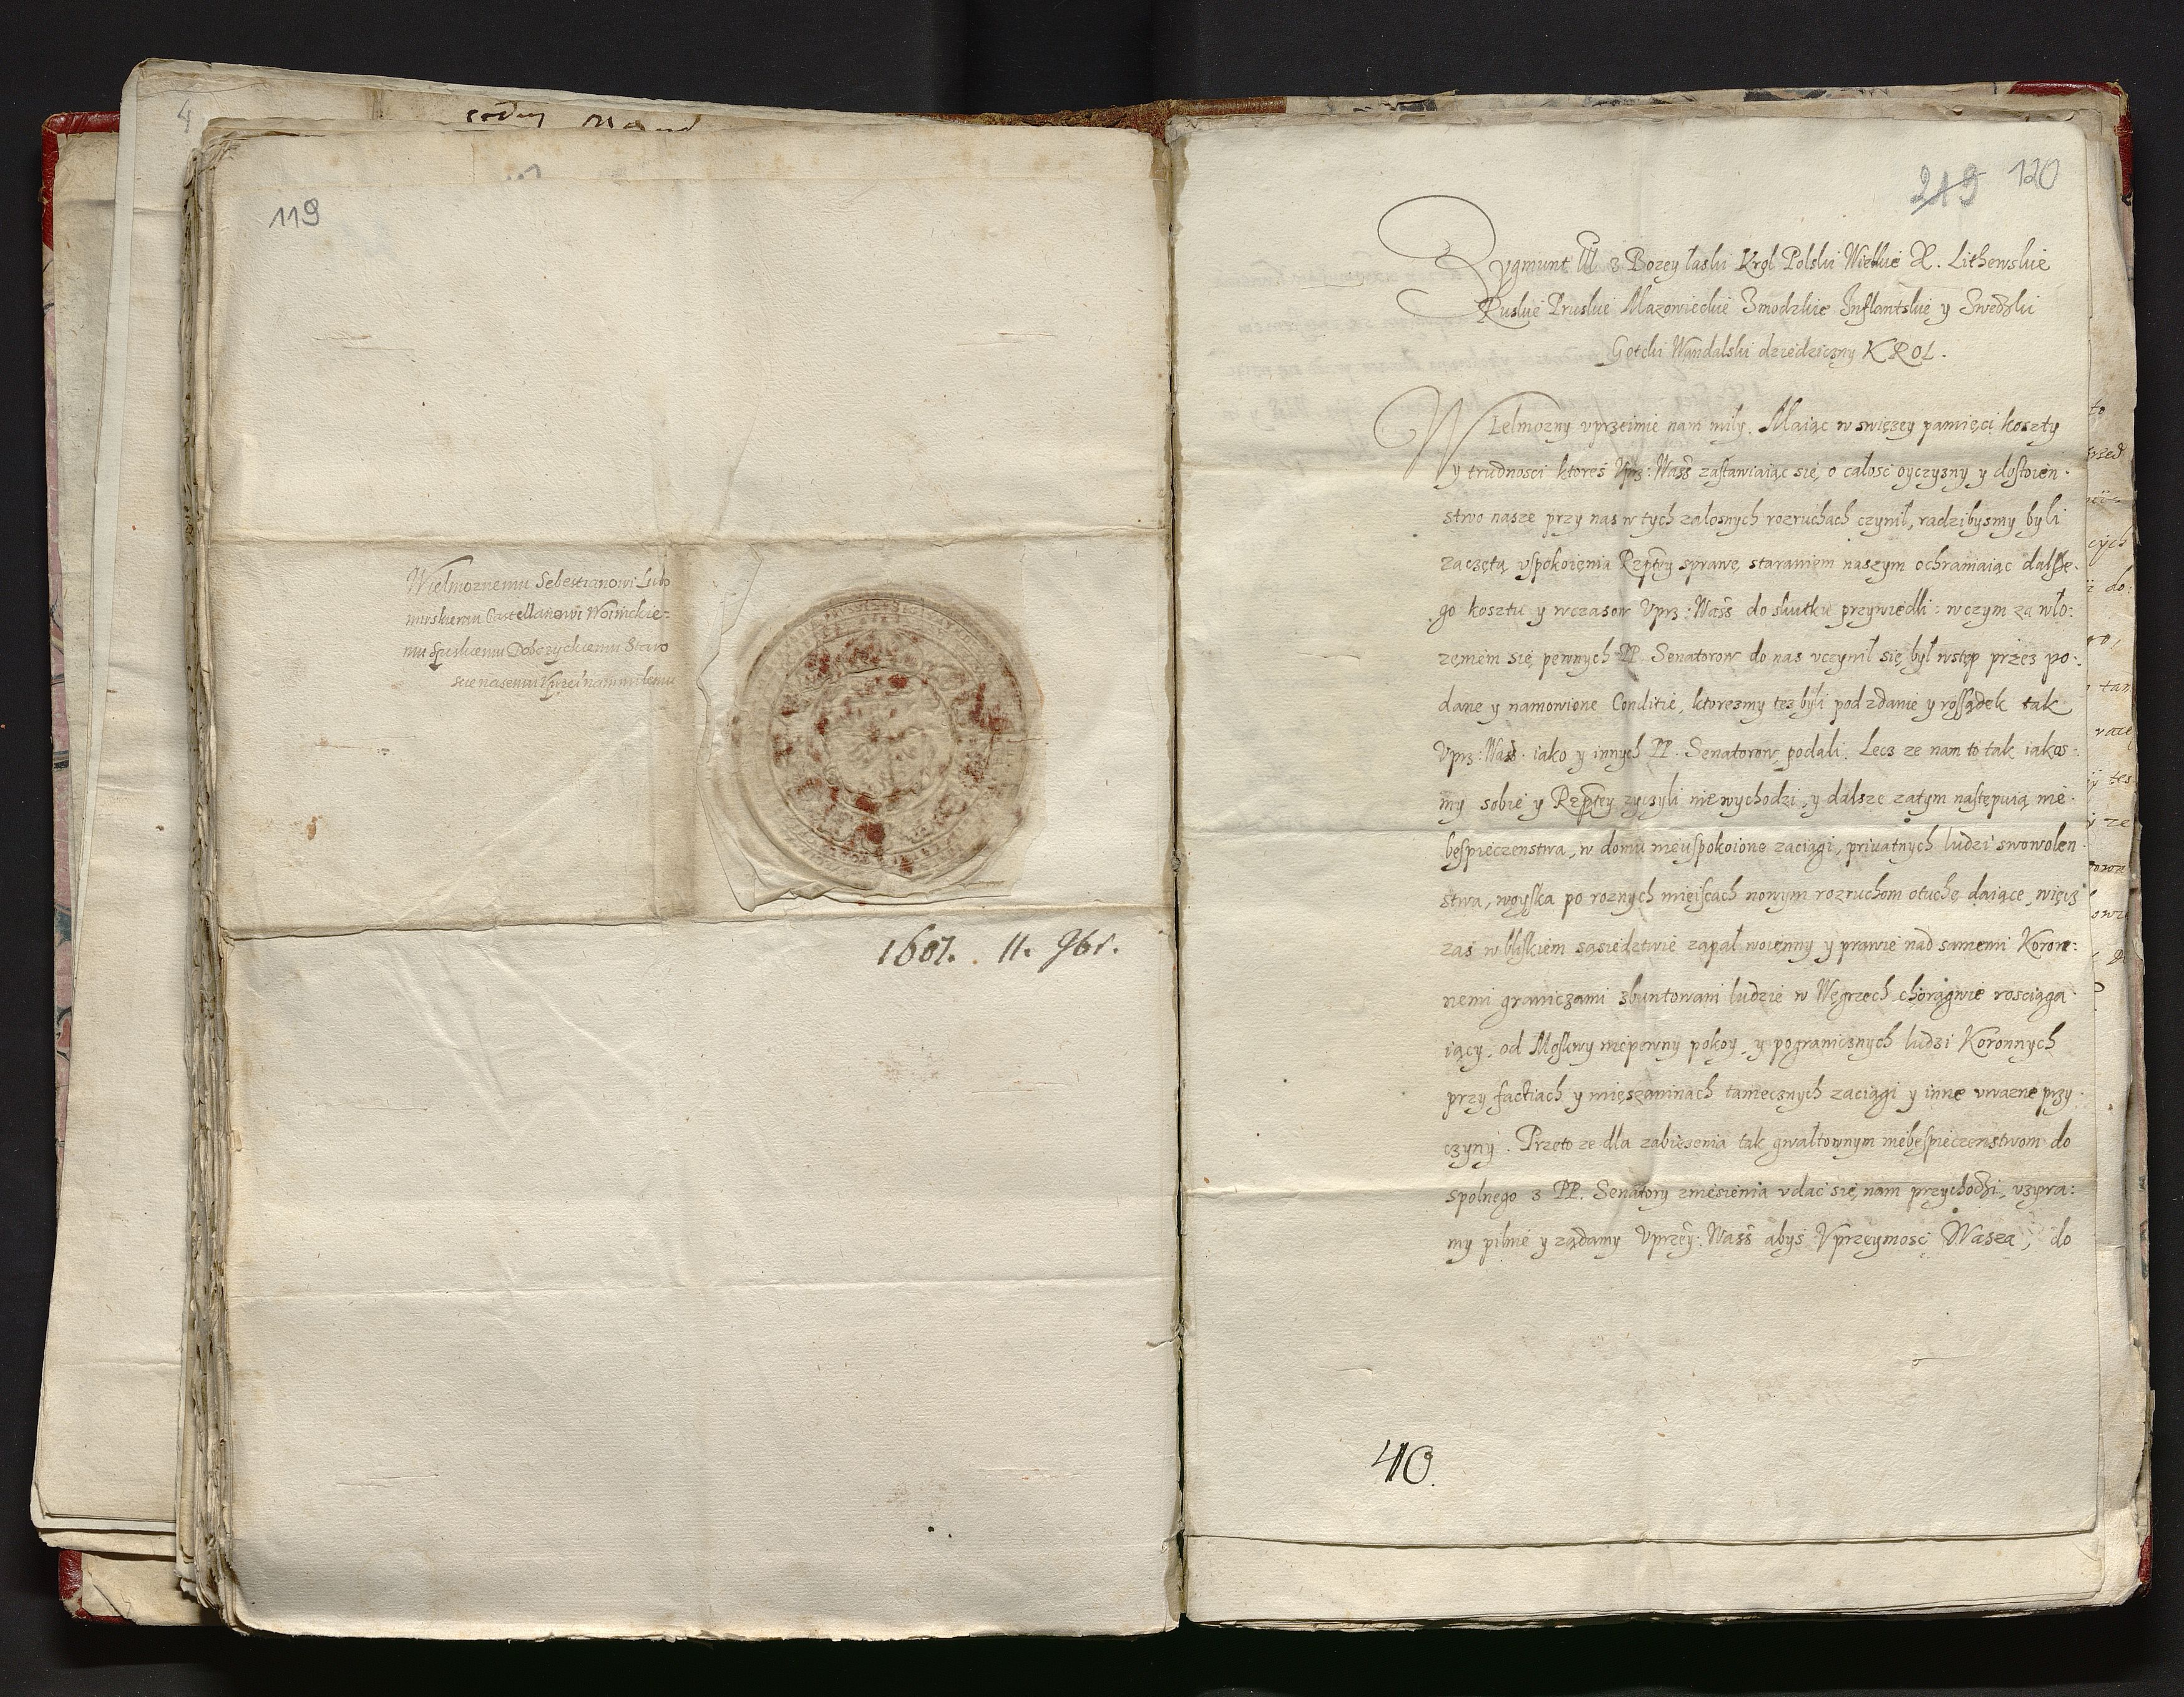 119
Wielmoznemu Sebestianowi Lubo
mirskiemu Castellanowi Woinickie-
mu Spiskiemu Dobczyckiemu Staro
scie nasemu Uprzei nam miłemu
1607. 11. 9br.
219 120
Zygmunt III z Bozey łaski Krol Polski Wielkie X. Lithewskie
Ruskie Pruskie Mazowieckie Zmodzkie Inflantskie y Swedzki
Gotcki Wandalski dziedziczny KROL.
WIelmozny uprzeimie nam miły. Maiąc w swięzey pamięci koszty
y trudnosci ktoreś Uprz: Wasz zastawiaiąc się o całosc oyczyzny y dostoien-
stwo nasze przy nas w tych załosnych rozruchach czynił, radzibysmy byli
zaczętą uspokoienia Rzptey sprawę staraniem naszym ochraniaiąc dalsze-
go kosztu y wczasow Uprz: Wasz do skutku przywiedli: w czym za wło:
zeniem się pewnych PP. Senatorow do nas uczynił się był wstęp przez po-
dane y namowione Conditie, ktoresmy tez byli pod zdanie y rossądek tak
Uprz: Wasz. iako y innych PP. Senatorow podali. Lecz ze nam to tak iakos:
my sobie y Rzptey zyczyli niewychodzi, y dalsze zatym nastepuią nie-
bespieczenstwa, w domu nieuspokoione zaciągi, priuatnych ludzi swowolen
stwa, woyska po roznych mieiscach nowym rozruchom otuchę daiące, więcz
zas w bliskiem sąsiedztwie zapał woienny y prawie nad samemi Koron:
nemi graniczami zbuntowani ludzie w Węgrzech chorągwie rosciąga
iący, od Moskwy niepewny pokoy, y pogranicznych ludzi Koronnych
przy factiach y mięszaninach tamecznych zaciągi y inne uwazne przy
czyny. Przeto ze dla zabiezenia tak gwałtownym niebespieczenstwom do
spolnego z PP. Senatory zniesienia udac się nam przychodzi, uzywa:
my pilnie y ządamy Uprzey: Wasz abyś Uprzeymosc Wasza, do
40.